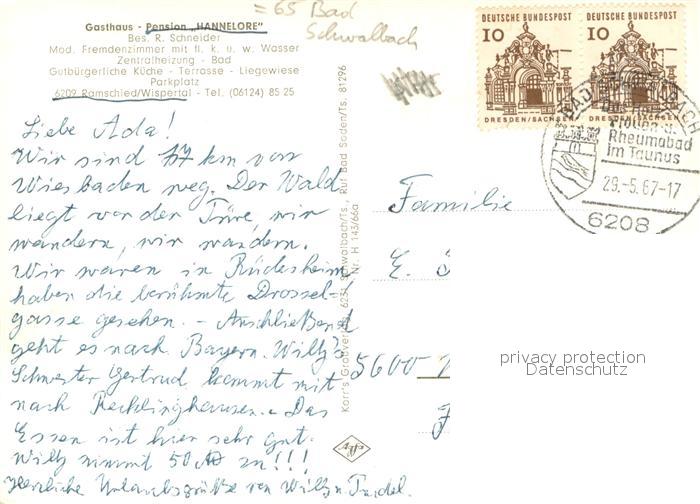 = 65 Bad
Schwalbach
Gasthaus - Pension „HANNELORE"
Bes. R. Schneider
Mod. Fremdenzimmer mit fl. k. u. w. Wasser
Zentralheizung - Bad
Gutbürgerliche Küche - Terrasse - Liegewiese
Parkplatz
6209 Ramschied/Wispertal - Tel. (06124) 85 25
Liebe Ada!
Wir sind 17 km von
Wiesbaden weg. Der Wald
liegt vor der Türe, wir
wandern, wir wandern.
Wir waren in Rüdesheim
haben die berühmte Drossel-
gasse gesehen. - Anschließend
geht es nach Bayern. Willy's
Schwester Gertrud kommt mit
nach Recklinghausen. - Das
Essen ist hier sehr gut.
Willy nimmt 50 zu!!!
Herzliche Urlaubsgrüße von Willy u.
Karr's Großvertrieb, 6231 Schwalbach/Ts., Ruf Bad Soden/Ts. 81296
Nr. H 143/66a
Agfa
DEUTSCHE BUNDESPOST
10
DRESDEN/SACHSEN
DEUTSCHE BUNDESPOST
10
DRESDEN/SACHSEN
BAD
Rheumabad
im Taunus
29.-5.67-17
6208
Familie
E.
5600
privacy protection
Datenschutz